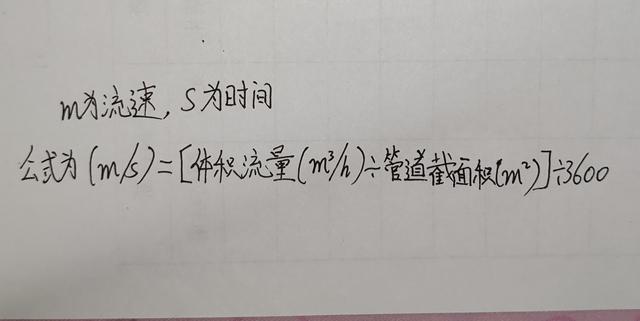 m为流速，S为时间
公式为(m/s)=[体积流量(m³/h)÷管道截面积(m²)]÷3600